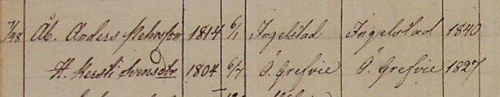 7/98 Åb. Anders Pehrsson 1814 6/1 Ingelstad Ingelstad 1840
H. Kersti Svensdtr 1804 6/7 Ö. Grefvie Ö. Grefvie 1827